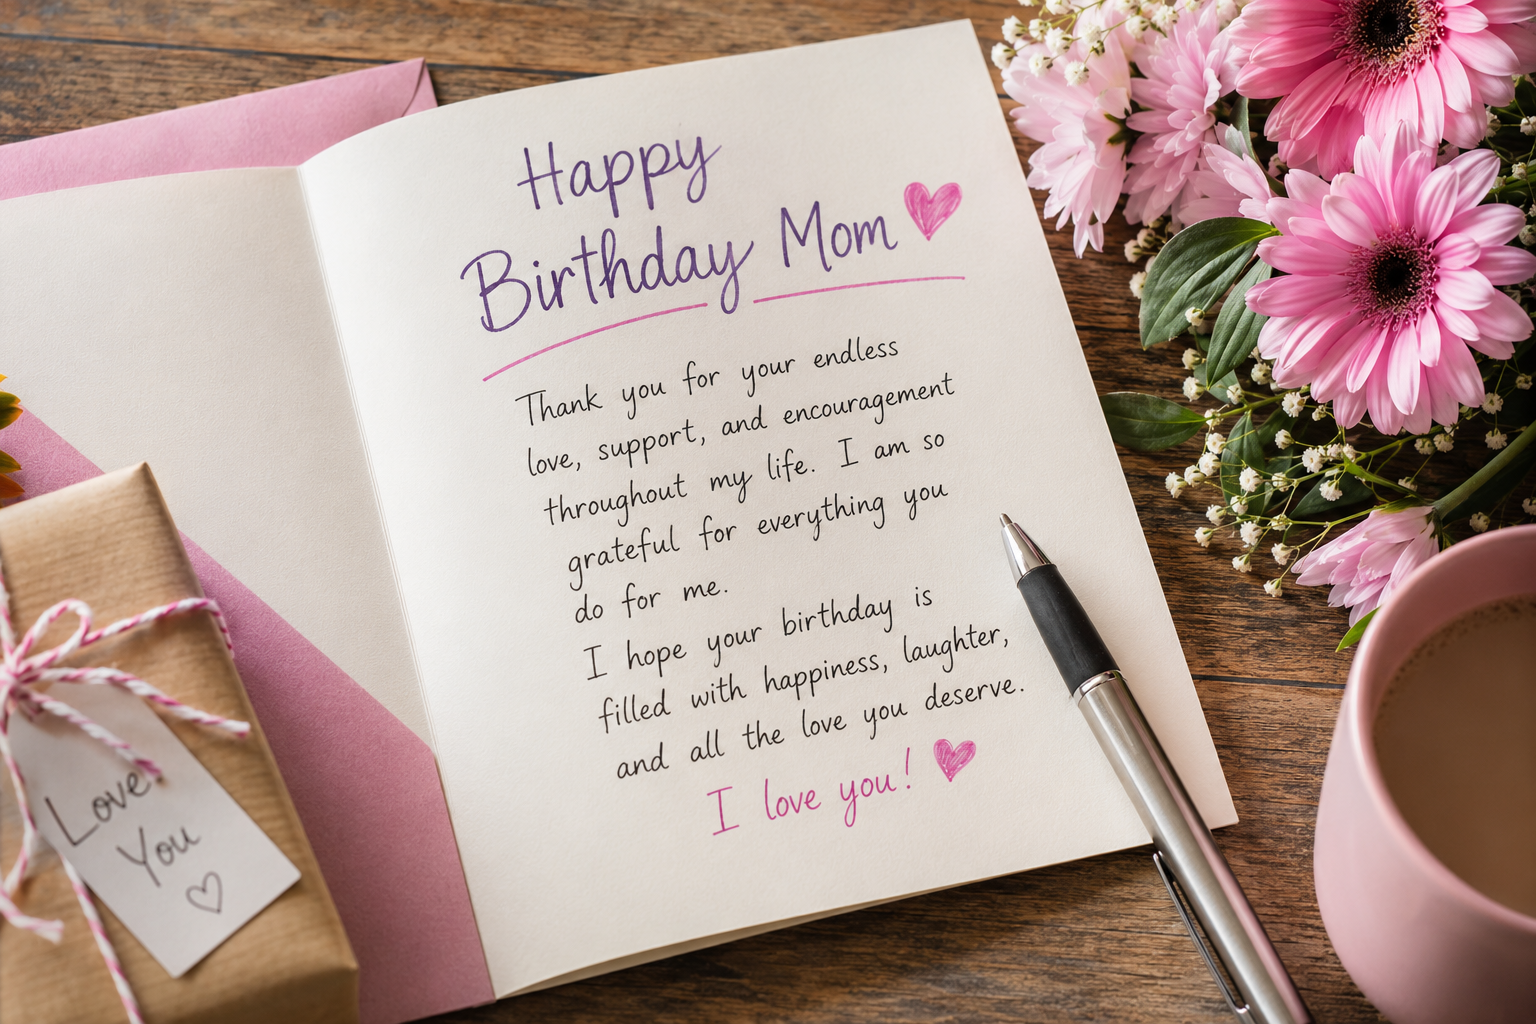 Happy
Birthday Mom
Thank you for your endless
love, support, and encouragement
throughout my life. I am so
grateful for everything you
do for me.
I hope your birthday is
filled with happiness, laughter,
and all the love you deserve.
I love you!
Love
You